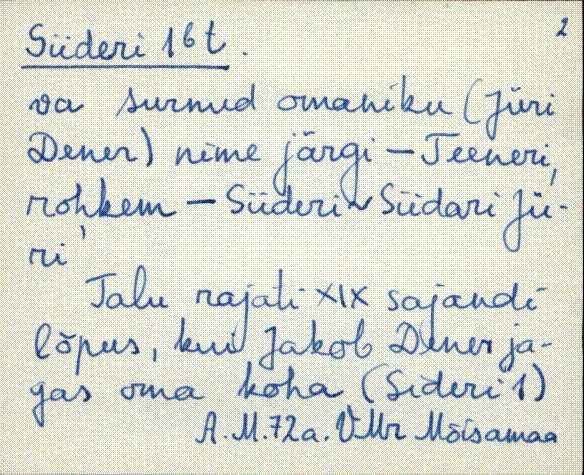 Siideri 16 t. 2
va surnud omaniku (Jüri
Dener) nime järgi – Teeneri,
rohkem – Siideri ~ Siidari Jü-
ri'
Talu rajati XIX sajandi
lõpus, kui Jakob Dener ja-
gas oma koha (Sideri 1)
A. M. 72 a. VMr Mõisamaa